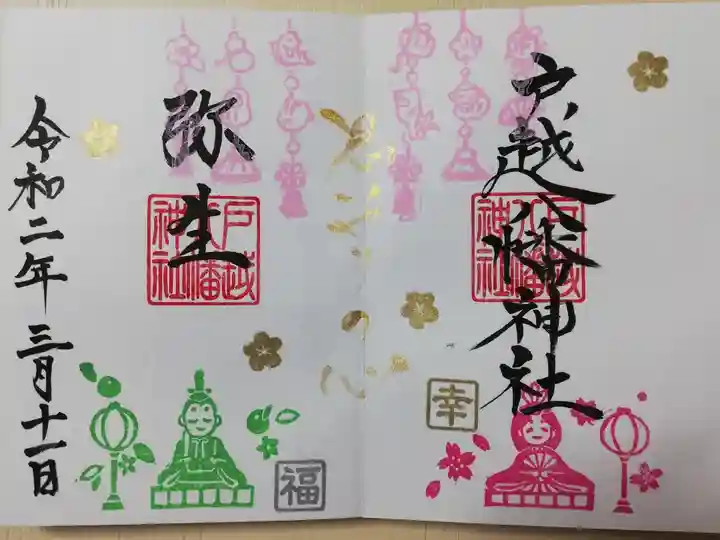 戸越八幡神社
戸越八幡神社
幸
弥生
戸越八幡神社
福
令和二年三月十一日